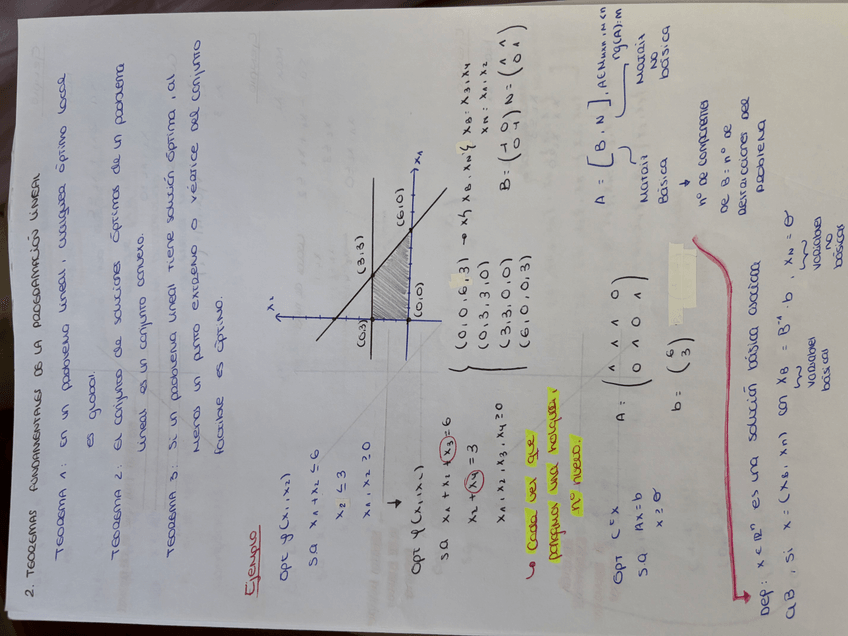 2. TEOREMAS FUNDAMENTALES DE LA PROGRAMACIÓN LINEAL
TEOREMA 1: En un problema lineal, cualquier óptimo local
es global.
TEOREMA 2: El conjunto de soluciones óptimas de un problema
lineal es un conjunto convexo.
TEOREMA 3: Si un problema lineal tiene solución óptima, al
menos un punto extremo o vértice del conjunto
factible es óptimo.
Ejemplo
Opt φ(x₁,x₂)
SA x₁+x₂ ≤ 6
x₂ ≤ 3
x₁, x₂ ≥ 0
x₂
(0,3)
(3,3)
(0,0)
(6,0)
x₁
↓
Opt φ(x₁,x₂)
SA x₁+x₂+x₃=6
x₂+x₄=3
x₁,x₂,x₃,x₄≥0
(0,0,6,3)
(0,3,3,0)
(3,3,0,0)
(6,0,0,3)
→ x{x_B, x_N} x_B: x₃,x₄
x_N: x₁,x₂
B=(1 0 / 0 1) N=(1 1 / 0 1)
↳ Cada vez que
pongamos una holgura,
nº nuevo.
Opt cᵗx
SA Ax=b
x≥θ
A = (1 1 1 0 / 0 1 0 1)
b = (6 / 3)
A = [B, N], A∈M_mxn, m<n
rg(A)=m
Matriz
Básica
Matriz
no
básica
↓
nº de componentes
de B: nº de
restricciones del
problema
Def: x∈ℝⁿ es una solución básica asociada
a B, si x=(x_B, x_N) con x_B = B⁻¹·b, x_N=θ
variables
básicas
variables
no
básicas